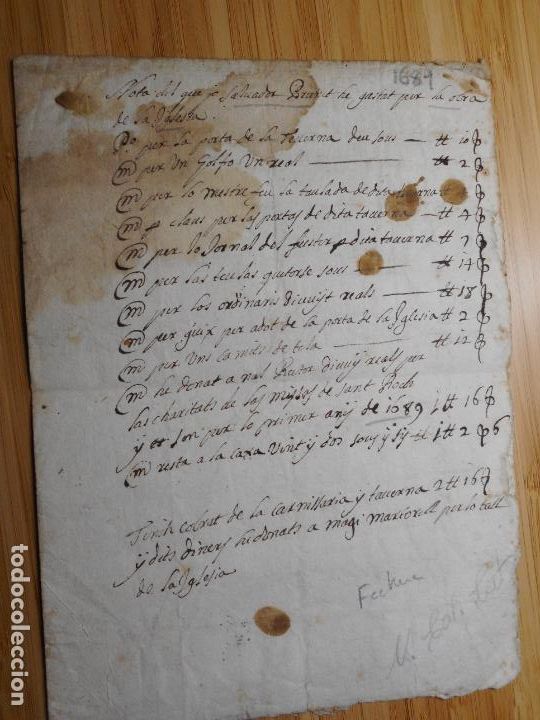 1689
Nota del que jo Salvador he gastat per la obra
de la Iglesia.
Po per la porta de la taverna deu sous — ₶ 10 β
m per un Golfo un real — ₶ 2 β
m per lo mestre feu la taulada de dita taverna ₶
m p claus per las portas de dita taverna — ₶ 4 β
m per lo Jornal del fuster p dita taverna ₶ 7 β
m per las teulas quatorse sous — ₶ 14 β
m per los ordinaris divuyt reals — ₶ 18 β
m per guix per adob de la porta de la Iglesia ₶ 2 β
m per uns camis de tela — ₶ 12 β
m he donat a nal Rector divuyt reals per
las charitats de las missas de sant Roch
y son per lo primer any de 1689 1 ₶ 16 β
m resta a la caxa vint y dos sous y sis 1 ₶ 2 β 6
Tinch cobrat de la carniseria y taverna 2 ₶ 16 β
y dits diners he donats a magi martorell per lo tall
de la Iglesia
todocoleccion